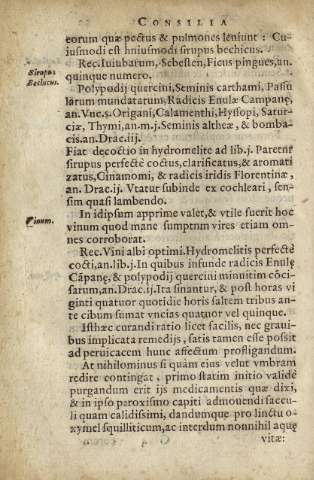 CONSILIA
eorum quæ pectus & pulmones leniunt: Cu-
iusmodi est huiusmodi sirupus bechicus.
Sirupus
Bechicus.
Rec. Iuiubarum, Sebesten, Ficus pingues, an.
quinque numero.
Polypodij quercini, Seminis carthami, Passu
larum mundatarum, Radicis Enulæ Campanę,
an. Vnc. s. Origani, Calamenthi, Hyssopi, Satur-
ciæ, Thymi, an. m. j. Seminis altheæ, & bomba-
cis. an. Drac. iij.
Fiat decoctio in hydromelite ad lib. j. Paretur
sirupus perfectè coctus, clarificatus, & aromati
zatus, Cinamomi, & radicis iridis Florentinæ,
an. Drac. ij. Vtatur subinde ex cochleari, sen-
sim quasi lambendo.
Vinum.
In idipsum apprime valet, & vtile fuerit hoc
vinum quod mane sumptum vires etiam om-
nes corroborat.
Rec. Vini albi optimi. Hydromelitis perfectè
cocti, an. lib. j. In quibus infunde radicis Enulę
Cāpanę, & polypodij quercini minutim cōci-
sarum, an. Drac. ij. Ita sinantur, & post horas vi
ginti quatuor quotidie horis saltem tribus an-
te cibum sumat vncias quatuor vel quinque.
Isthæc curandi ratio licet facilis, nec graui-
bus implicata remedijs, satis tamen esse possit
ad peruicacem hunc affectum profligandum.
At nihilominus si quàm eius velut vmbram
redire contingat, primo statim initio validè
purgandum erit ijs medicamentis quæ dixi,
& in ipso peroxismo capiti admouendi saccu-
li quam calidissimi, dandumque pro linctu o-
xymel squilliticum, ac interdum nonnihil aquę
vitæ: